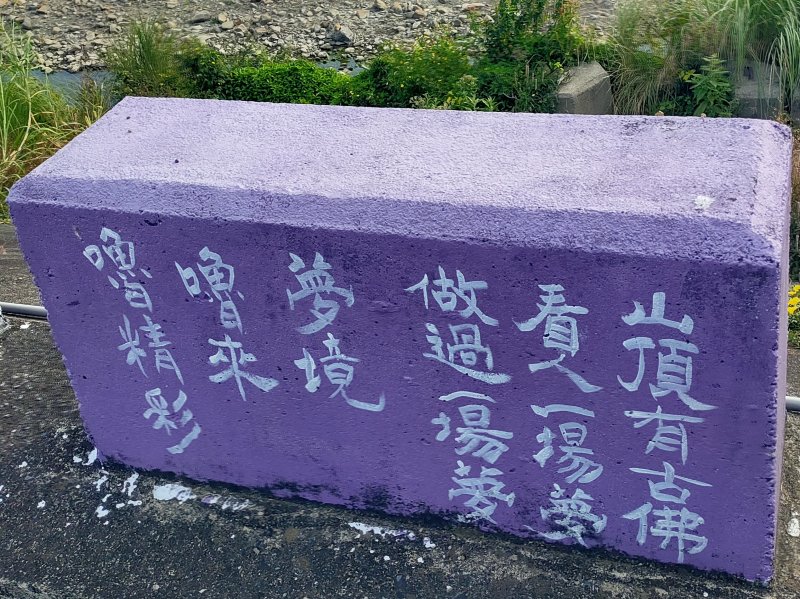 山頂有古佛
看人一場夢
做過一場夢
夢境
嚕來
嚕精彩